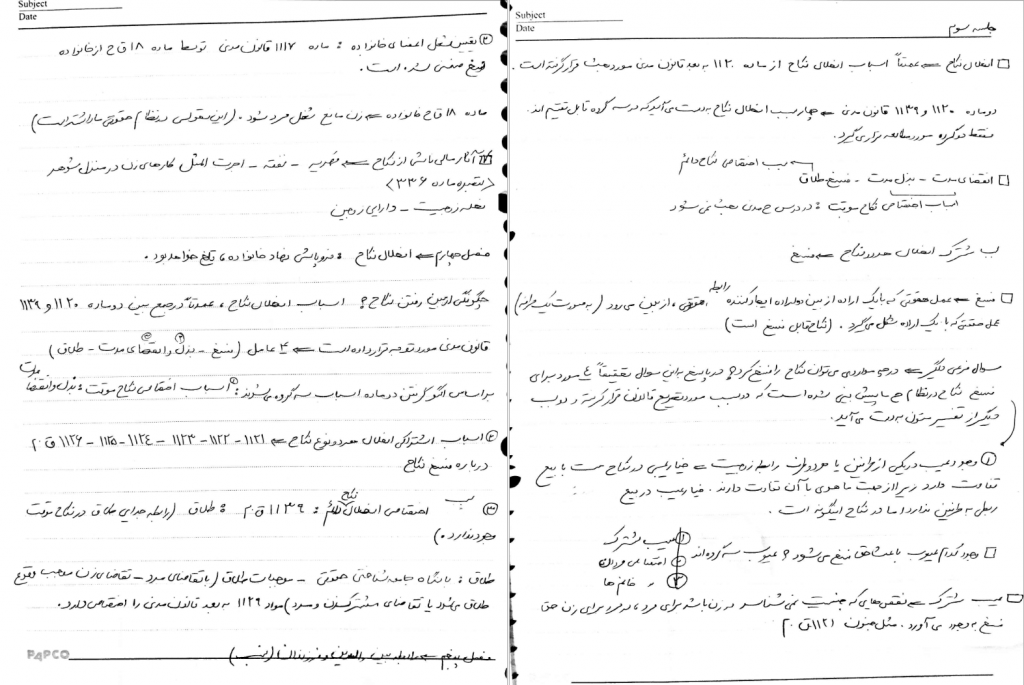 Subject
Date
جلسه سوم
□ انحلال نکاح ← عمدتاً اسباب انحلال نکاح از ماده ۱۱۲۰ به بعد قانون مدنی مورد بحث قرار گرفته است.
دو ماده ۱۱۲۰ و ۱۱۳۹ قانون مدنی ← چهار سبب انحلال نکاح به دست می آید که در سه گروه قابل تقسیم اند.
فقط دو گروه مورد مطالعه قرار می گیرد.
سبب اختصاصی نکاح دائم
□ انقضای مدت - بذل مدت - فسخ - طلاق
اسباب اختصاصی نکاح موقت : در درس ح مدنی بحث نمی شود
سبب مشترک انحلال هر دو نکاح ← فسخ
□ فسخ ← عمل حقوقی که با یک اراده از بین دو اراده ایجاد کننده رابطه حقوقی، از بین می رود (به صورت یک طرفه)
عمل حقوقی که با یک اراده شکل می گیرد. (نکاح قابل فسخ است)
سوال فرعی دیگر ← در چه مواردی می توان نکاح را فسخ کرد؟ در پاسخ به این سوال دقیقاً ٤ مورد برای
فسخ نکاح در نظام ح ما پیش بینی شده است که دو سبب مورد تصریح قانون قرار گرفته و دو سبب
دیگر از تفسیر متون به دست می آید.
① وجود عیب در یکی از طرفین یا هر دو طرف رابطه زوجیت ← خیار عیب در نکاح با بیع
تفاوت دارد زیرا از حیث ماهوی با آن تفاوت دارند. خیار عیب در بیع
ربطی به طرفین ندارد اما در نکاح اینگونه است.
□ وجود کدام عیوب باعث حق فسخ می شود؟ عیوب سه گروه اند
① عیب مشترک
② اختصاصی مردان
③ " خانم ها
□ عیب مشترک ← نقص هایی که جنسیت نمی شناسد در زن باشد برای مرد، در مرد برای زن حق
فسخ به وجود می آورد. مثل جنون (۱۱۲۱ ق.م)
Subject
Date
② تعیین شغل اعضای خانواده : ماده ۱۱۱۷ قانون مدنی توسط ماده ۱۸ ق ا ح از خانواده
فسخ ضمنی شده است.
ماده ۱۸ ق ا ح خانواده ← زن مانع شغل مرد شود. (این در نظام حقوقی ما است)
آثار مالی ناشی از نکاح ← مهریه - نفقه - اجرت المثل کارهای زن در منزل شوهر
<تبصره ماده ۳۳۶>
نحله زوجیت - دارایی زوجین
فصل چهارم ← انحلال نکاح : فروپاشی نهاد خانواده، تلخ خواهد بود.
چگونگی از بین رفتن نکاح؟ اسباب انحلال نکاح، عمدتاً در جمع بین دو ماده ۱۱۲۰ و ۱۱۳۹
قانون مدنی مورد توجه قرار داده است ← ٤ عامل (فسخ - بذل و انقضای مدت - طلاق)
بر اساس الگو گرفتن دو ماده اسباب سه گروه می شوند: ① اسباب اختصاصی نکاح موقت: بذل و انقضا مدت
② اسباب اشتراکی انحلال هر دو نوع نکاح ← ۱۱۲۱ - ۱۱۲۲ - ۱۱۲۳ - ۱۱۲٤ - ۱۱۲۵ - ۱۱۲۶ ق.م
درباره فسخ نکاح
③ سبب اختصاصی انحلال نکاح دائم : ۱۱۳۹ ق.م : طلاق (رابطه جدایی طلاق در نکاح موقت
وجود ندارد.)
طلاق : جایگاه جامعه شناختی حقوقی - موجبات طلاق (با تقاضای مرد - تقاضای زن موجب وقوع
طلاق می شود یا تقاضای مشترک زن و مرد) مواد ۱۱۲۹ به بعد قانون مدنی را اختصاص دارد.
فصل پنجم ← رابطه بین والدین و فرزندان (نسب)
PAPCO